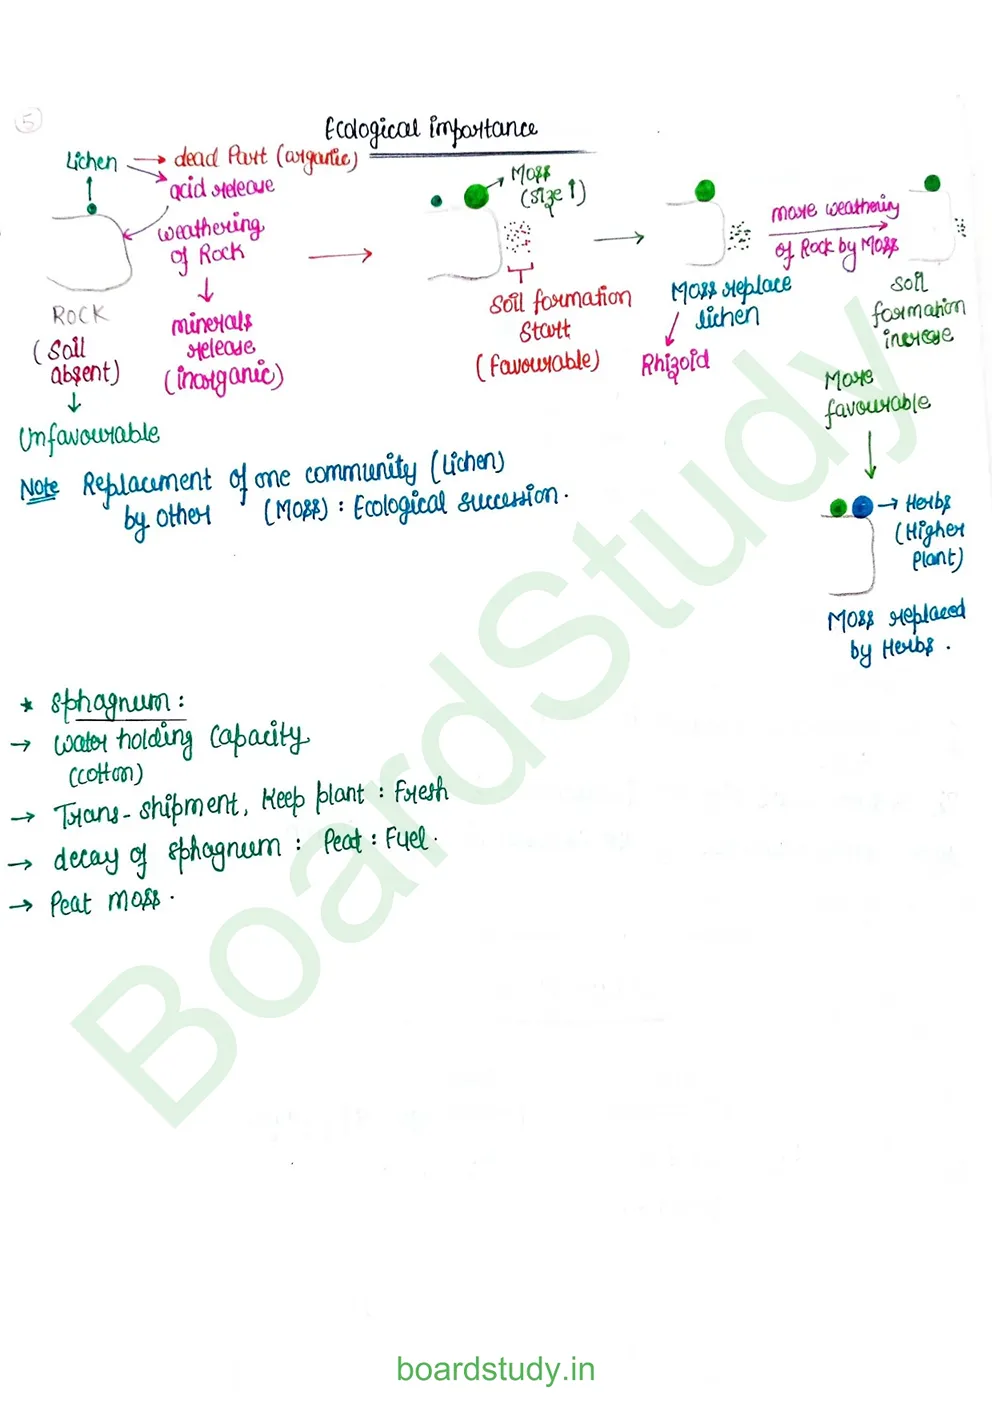 5
Ecological importance
Lichen → dead Part (organic)
acid release
weathering
of Rock
↓
minerals
release
(inorganic)
ROCK
(Soil
absent)
↓
Unfavourable
→
Moss
(size ↑)
Soil formation
Start
(Favourable)
→
Moss replace
lichen
Rhizoid
more weathering
of Rock by Moss
Soil
formation
increase
More
favourable
↓
→ Herbs
(Higher
plant)
Moss replaced
by Herbs.
Note Replacement of one community (Lichen)
by other (Moss) : Ecological succession.
* Sphagnum :
→ water holding capacity
(cotton)
→ Trans-shipment, Keep plant : Fresh
→ decay of sphagnum : Peat : Fuel.
→ Peat moss.
BoardStudy
boardstudy.in